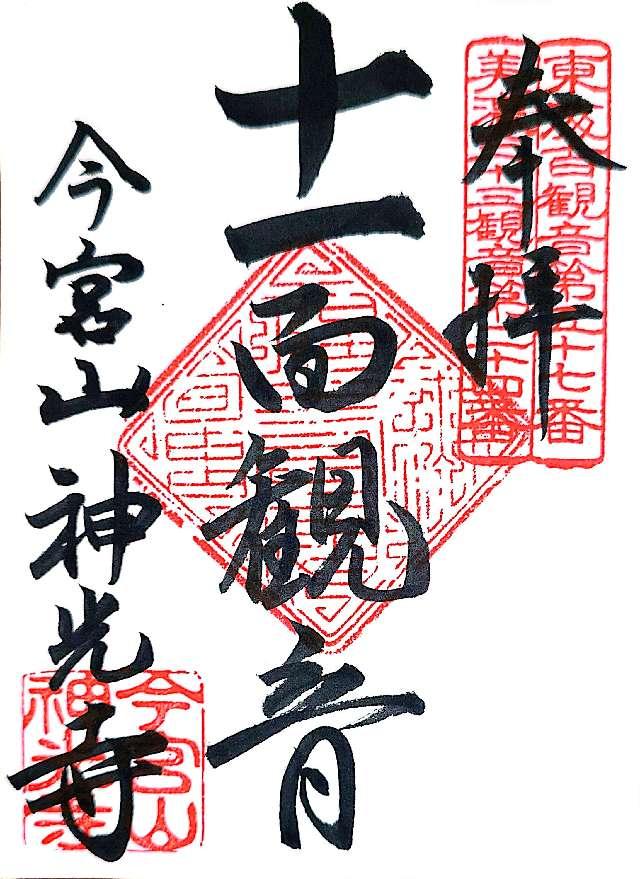 奉拝
東海百観音第五十七番
美濃三十三観音第二十四番
十一面観音
今宮山 神光寺
今宮山
神光寺